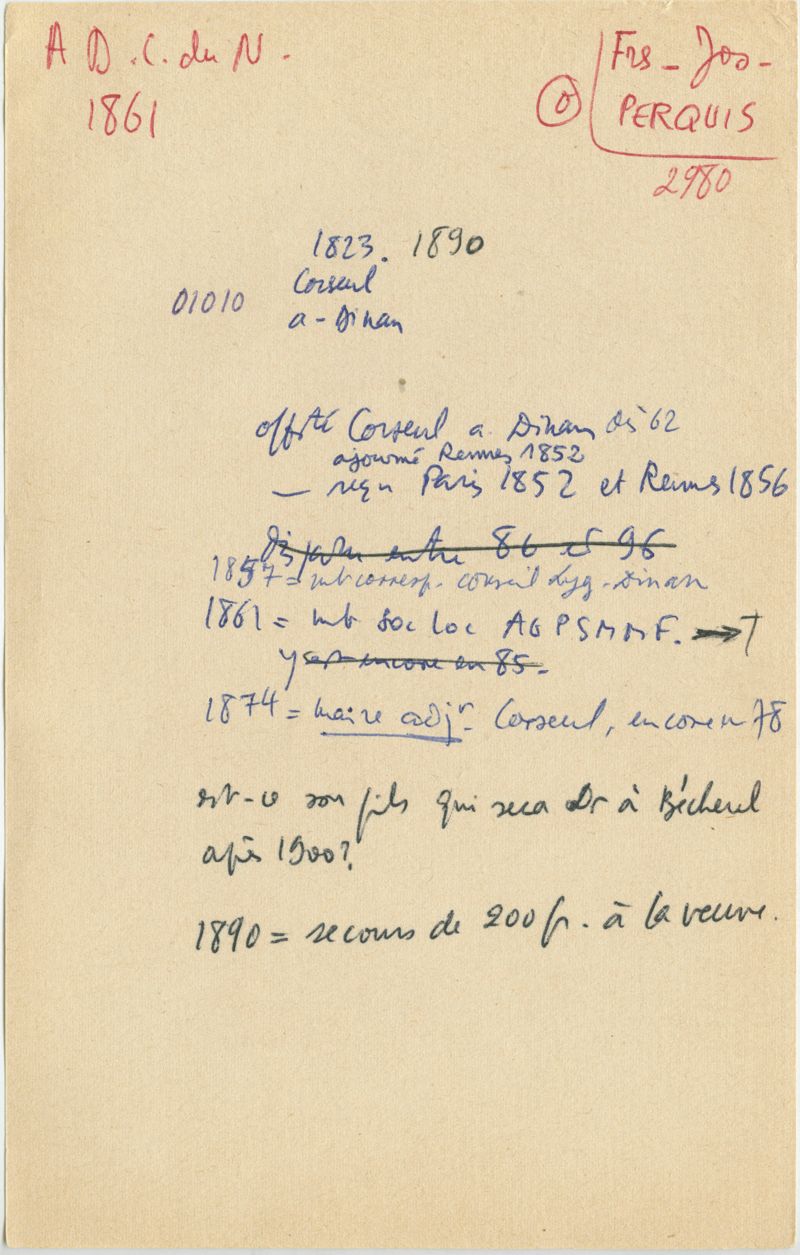 A D.C. du N.
1861
Frs-Jos-
PERQUIS
0
2980
1823. 1890
Corseul
01010
a-Dinan
offté Corseul a. Dinan dès 62
ajourné Rennes 1852
— reçu Paris 1852 et Rennes 1856
disparu entre 86 et 96
1857 = mb corresp. conseil hyg. Dinan
1861 = mb soc loc AGPSMMF. → †
y est encore en 85-
1874 = maire adjt. Corseul, encore en 78
est-ce son fils qui sera Dr à Bécherel
après 1900?
1890 = secours de 200 fr. à la veuve.